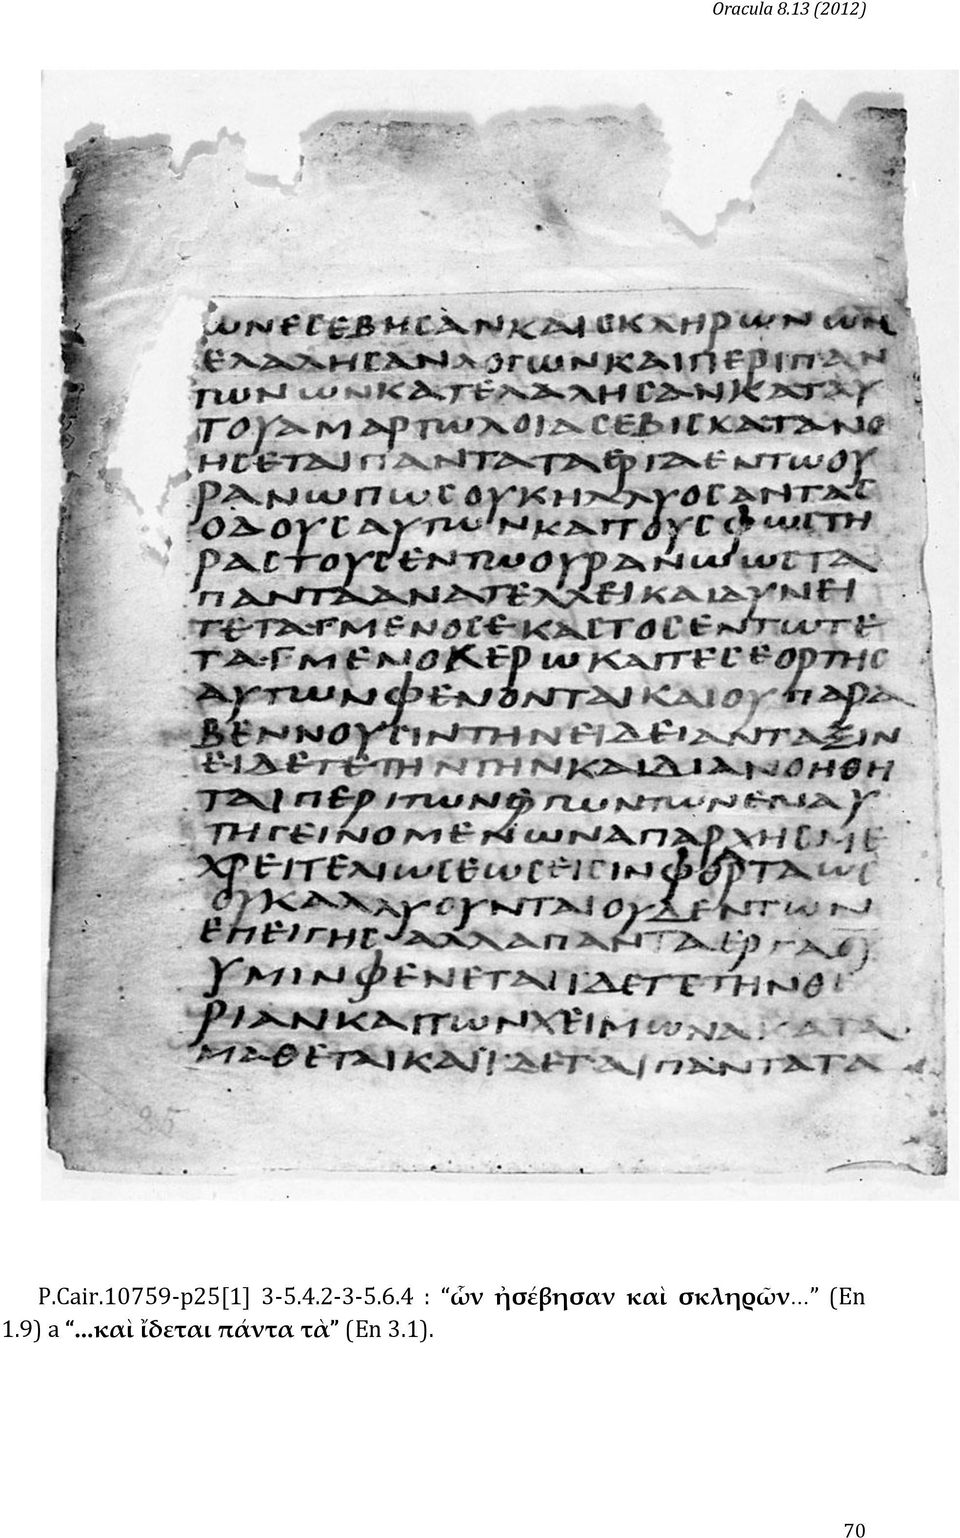 Oracula 8.13 (2012)
ΩΝΕϹΕΒΗϹΑΝΚΑΙϹΚΛΗΡΩΝΩΝ
ΕΛΑΛΗϹΑΝΛΟΓΩΝΚΑΙΠΕΡΙΠΑΝ
ΤΩΝΩΝΚΑΤΕΛΑΛΗϹΑΝΚΑΤΑΥ
ΤΟΥΑΜΑΡΤΩΛΟΙΑϹΕΒΙϹΚΑΤΑΝΟ
ΗϹΕΤΑΙΠΑΝΤΑΤΑΕΡΓΑΕΝΤΩΟΥ
ΡΑΝΩΠΩϹΟΥΚΗΛΛΥΟϹΑΝΤΑϹ
ΟΔΟΥϹΑΥΤΩΝΚΑΙΤΟΥϹΦΩϹΤΗ
ΡΑϹΤΟΥϹΕΝΤΩΟΥΡΑΝΩΩϹΤΑ
ΠΑΝΤΑΑΝΑΤΕΛΛΕΙΚΑΙΔΥΝΕΙ
ΤΕΤΑΓΜΕΝΟϹΕΚΑϹΤΟϹΕΝΤΩΤΕ
ΤΑΓΜΕΝΟΚΕΡΩΚΑΙΤΕϹΕΟΡΤΗϹ
ΑΥΤΩΝΦΕΝΟΝΤΑΙΚΑΙΟΥΠΑΡΑ
ΒΕΝΝΟΥϹΙΝΤΗΝΕΙΔΕΙΑΝΤΑΞΙΝ
ΕΙΔΕΤΕΤΗΝΤΗΝΚΑΙΔΙΑΝΟΗΘΗ
ΤΑΙΠΕΡΙΤΩΝΕΡΤΩΝΤΩΝΕΝΑΥ
ΤΗΓΕΙΝΟΜΕΝΩΝΑΠΑΡΧΗϹΜΕ
ΧΡΕΙΤΕΛΙΩϹΕΩϹΕΙϹΙΝΦΘΟΡΤΑΩϹ
ΟΥΚΑΛΛΥΟΥΝΤΑΙΟΥΔΕΝΤΩΝ
ΕΠΕΙΓΗϹΑΛΛΑΠΑΝΤΑΕΡΓΑΘΥ
ΥΜΙΝΦΕΝΕΤΑΙΙΔΕΤΕΤΗΝΘΕ
ΡΙΑΝΚΑΙΤΩΝΧΕΙΜΩΝΑΚΑΤΑ
ΜΑΘΕΤΑΙΚΑΙΙΔΕΤΑΙΠΑΝΤΑΤΑ
P.Cair.10759-p25[1] 3-5.4.2-3-5.6.4 : “ὧν ἠσέβησαν καὶ σκληρῶν… ” (En
1.9) a “...καὶ ἴδεται πάντα τὰ” (En 3.1).
70